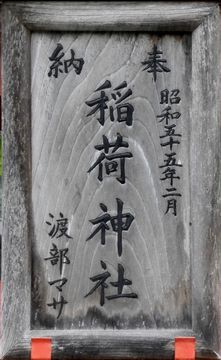 奉納
昭和五十五年二月
稲荷神社
渡部マサ